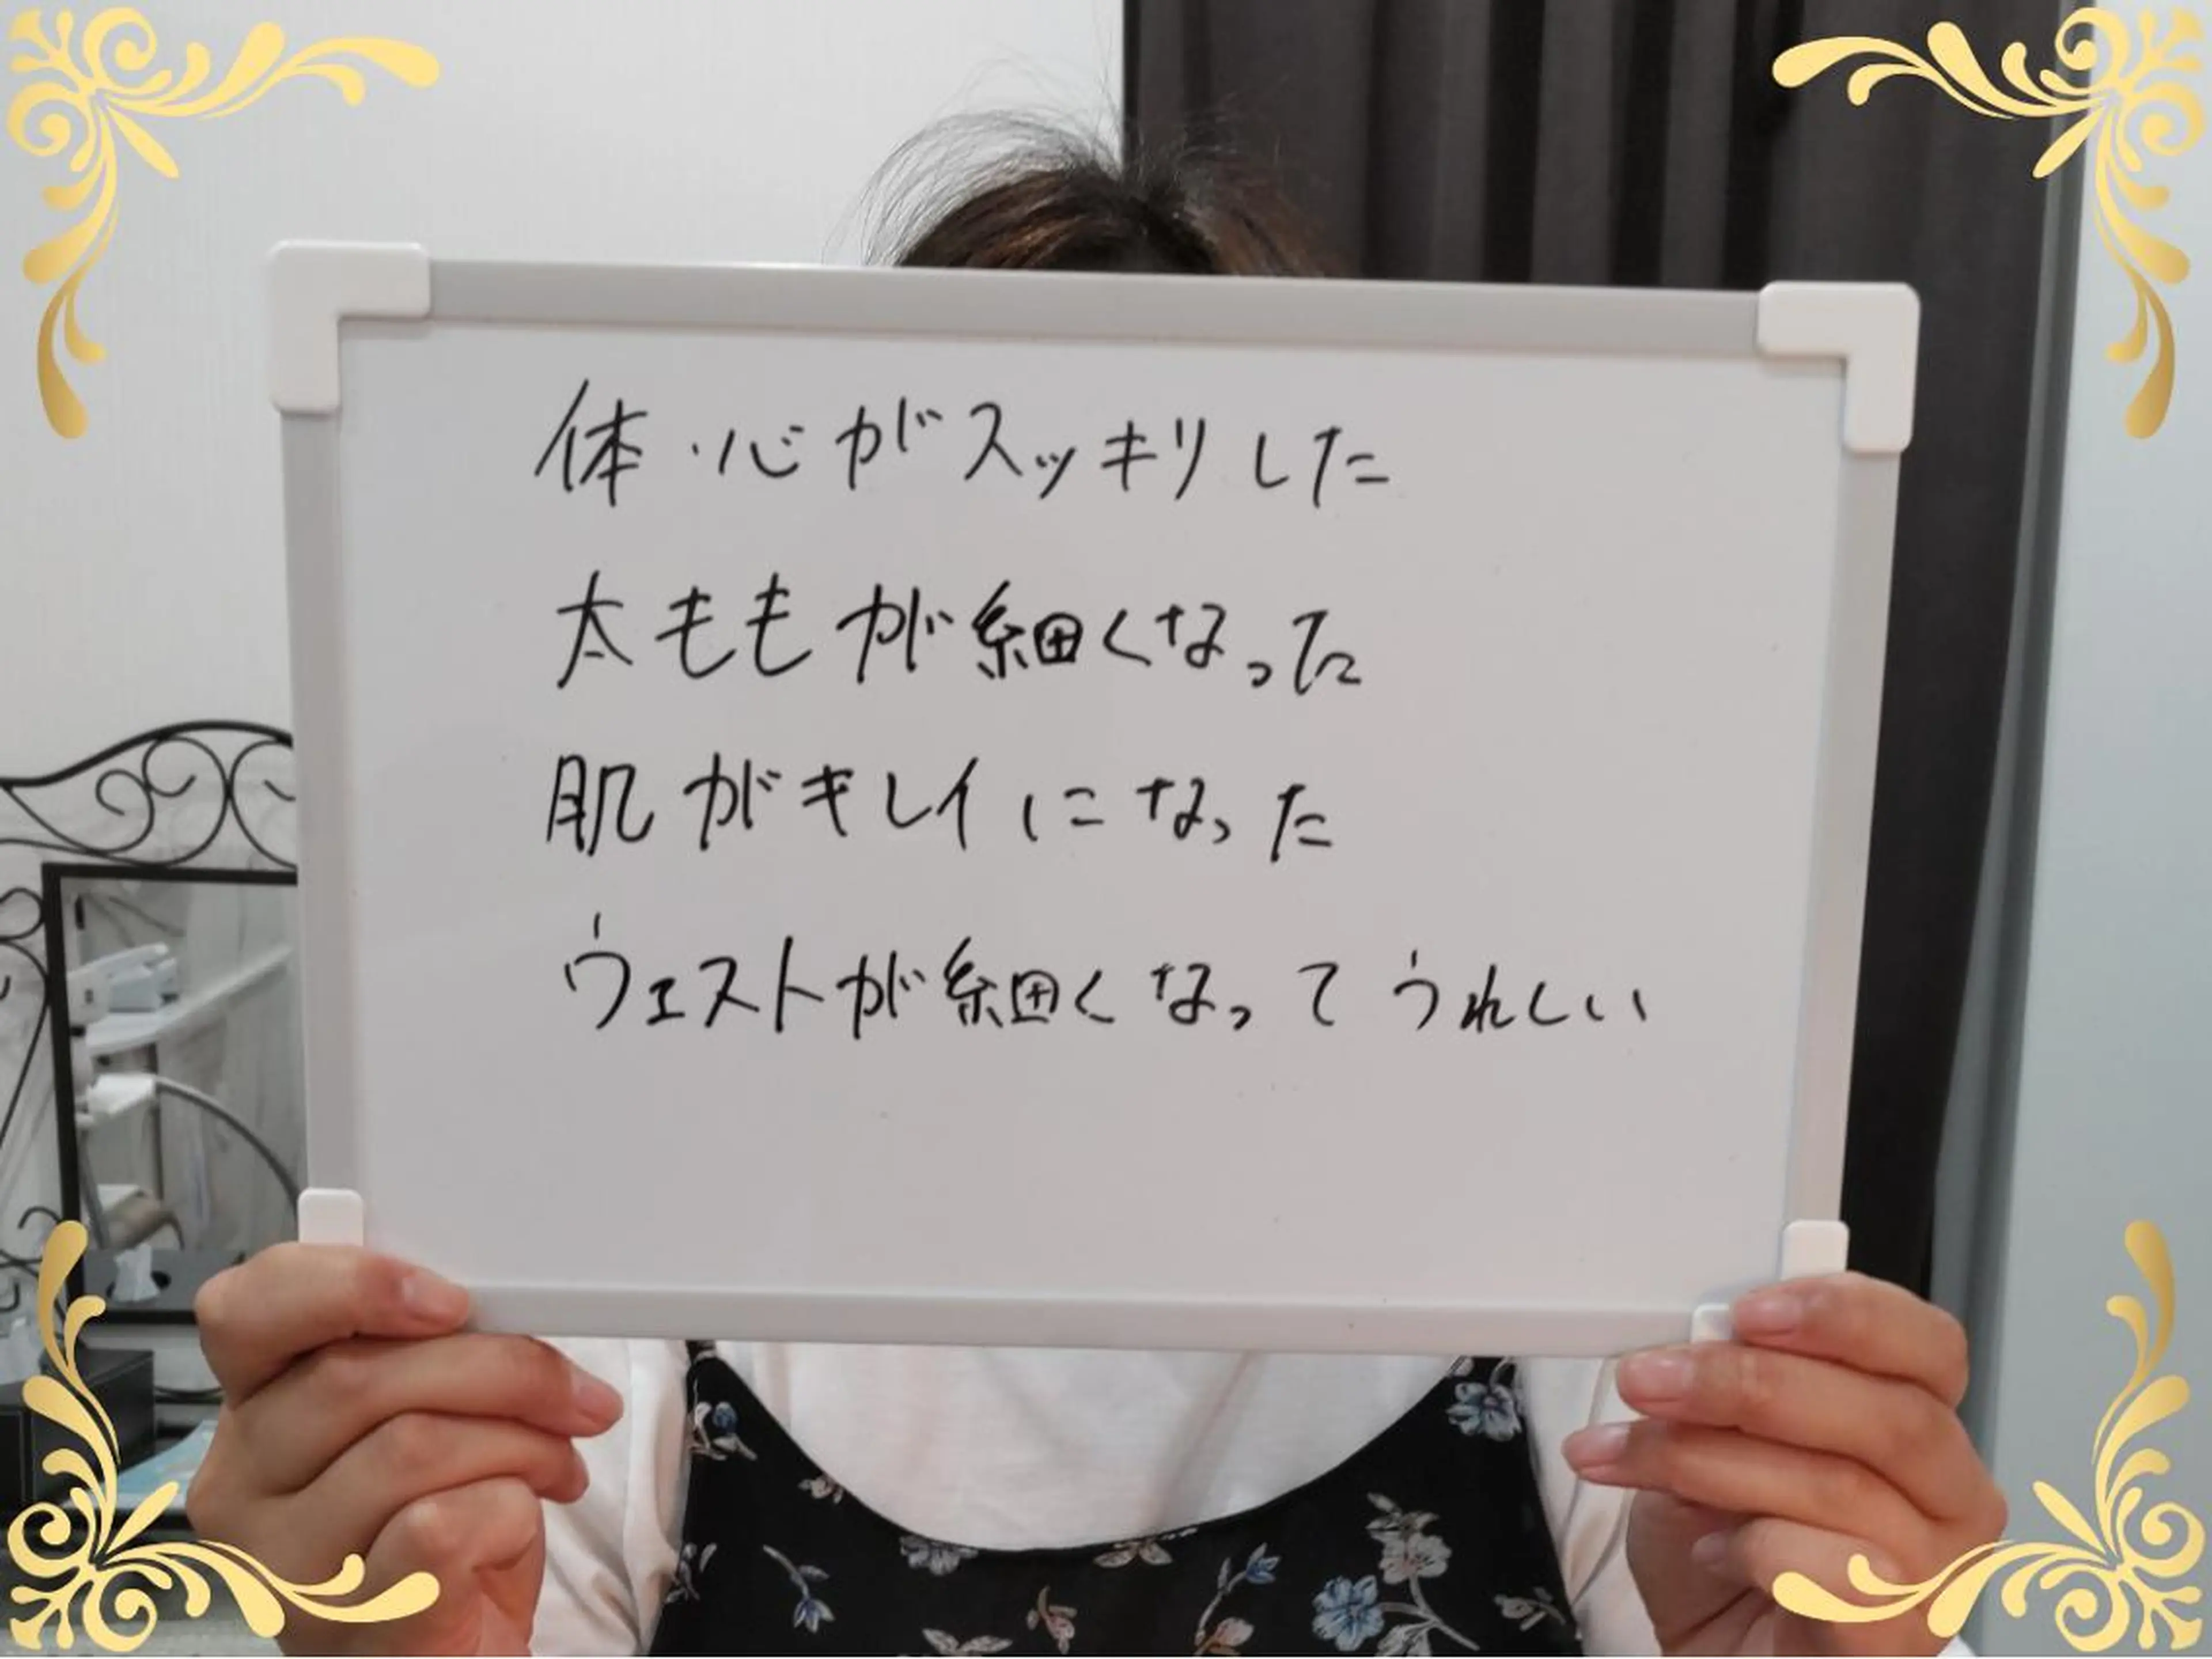 体・心がスッキリした
太ももが細くなった
肌がキレイになった
ウエストが細くなってうれしい